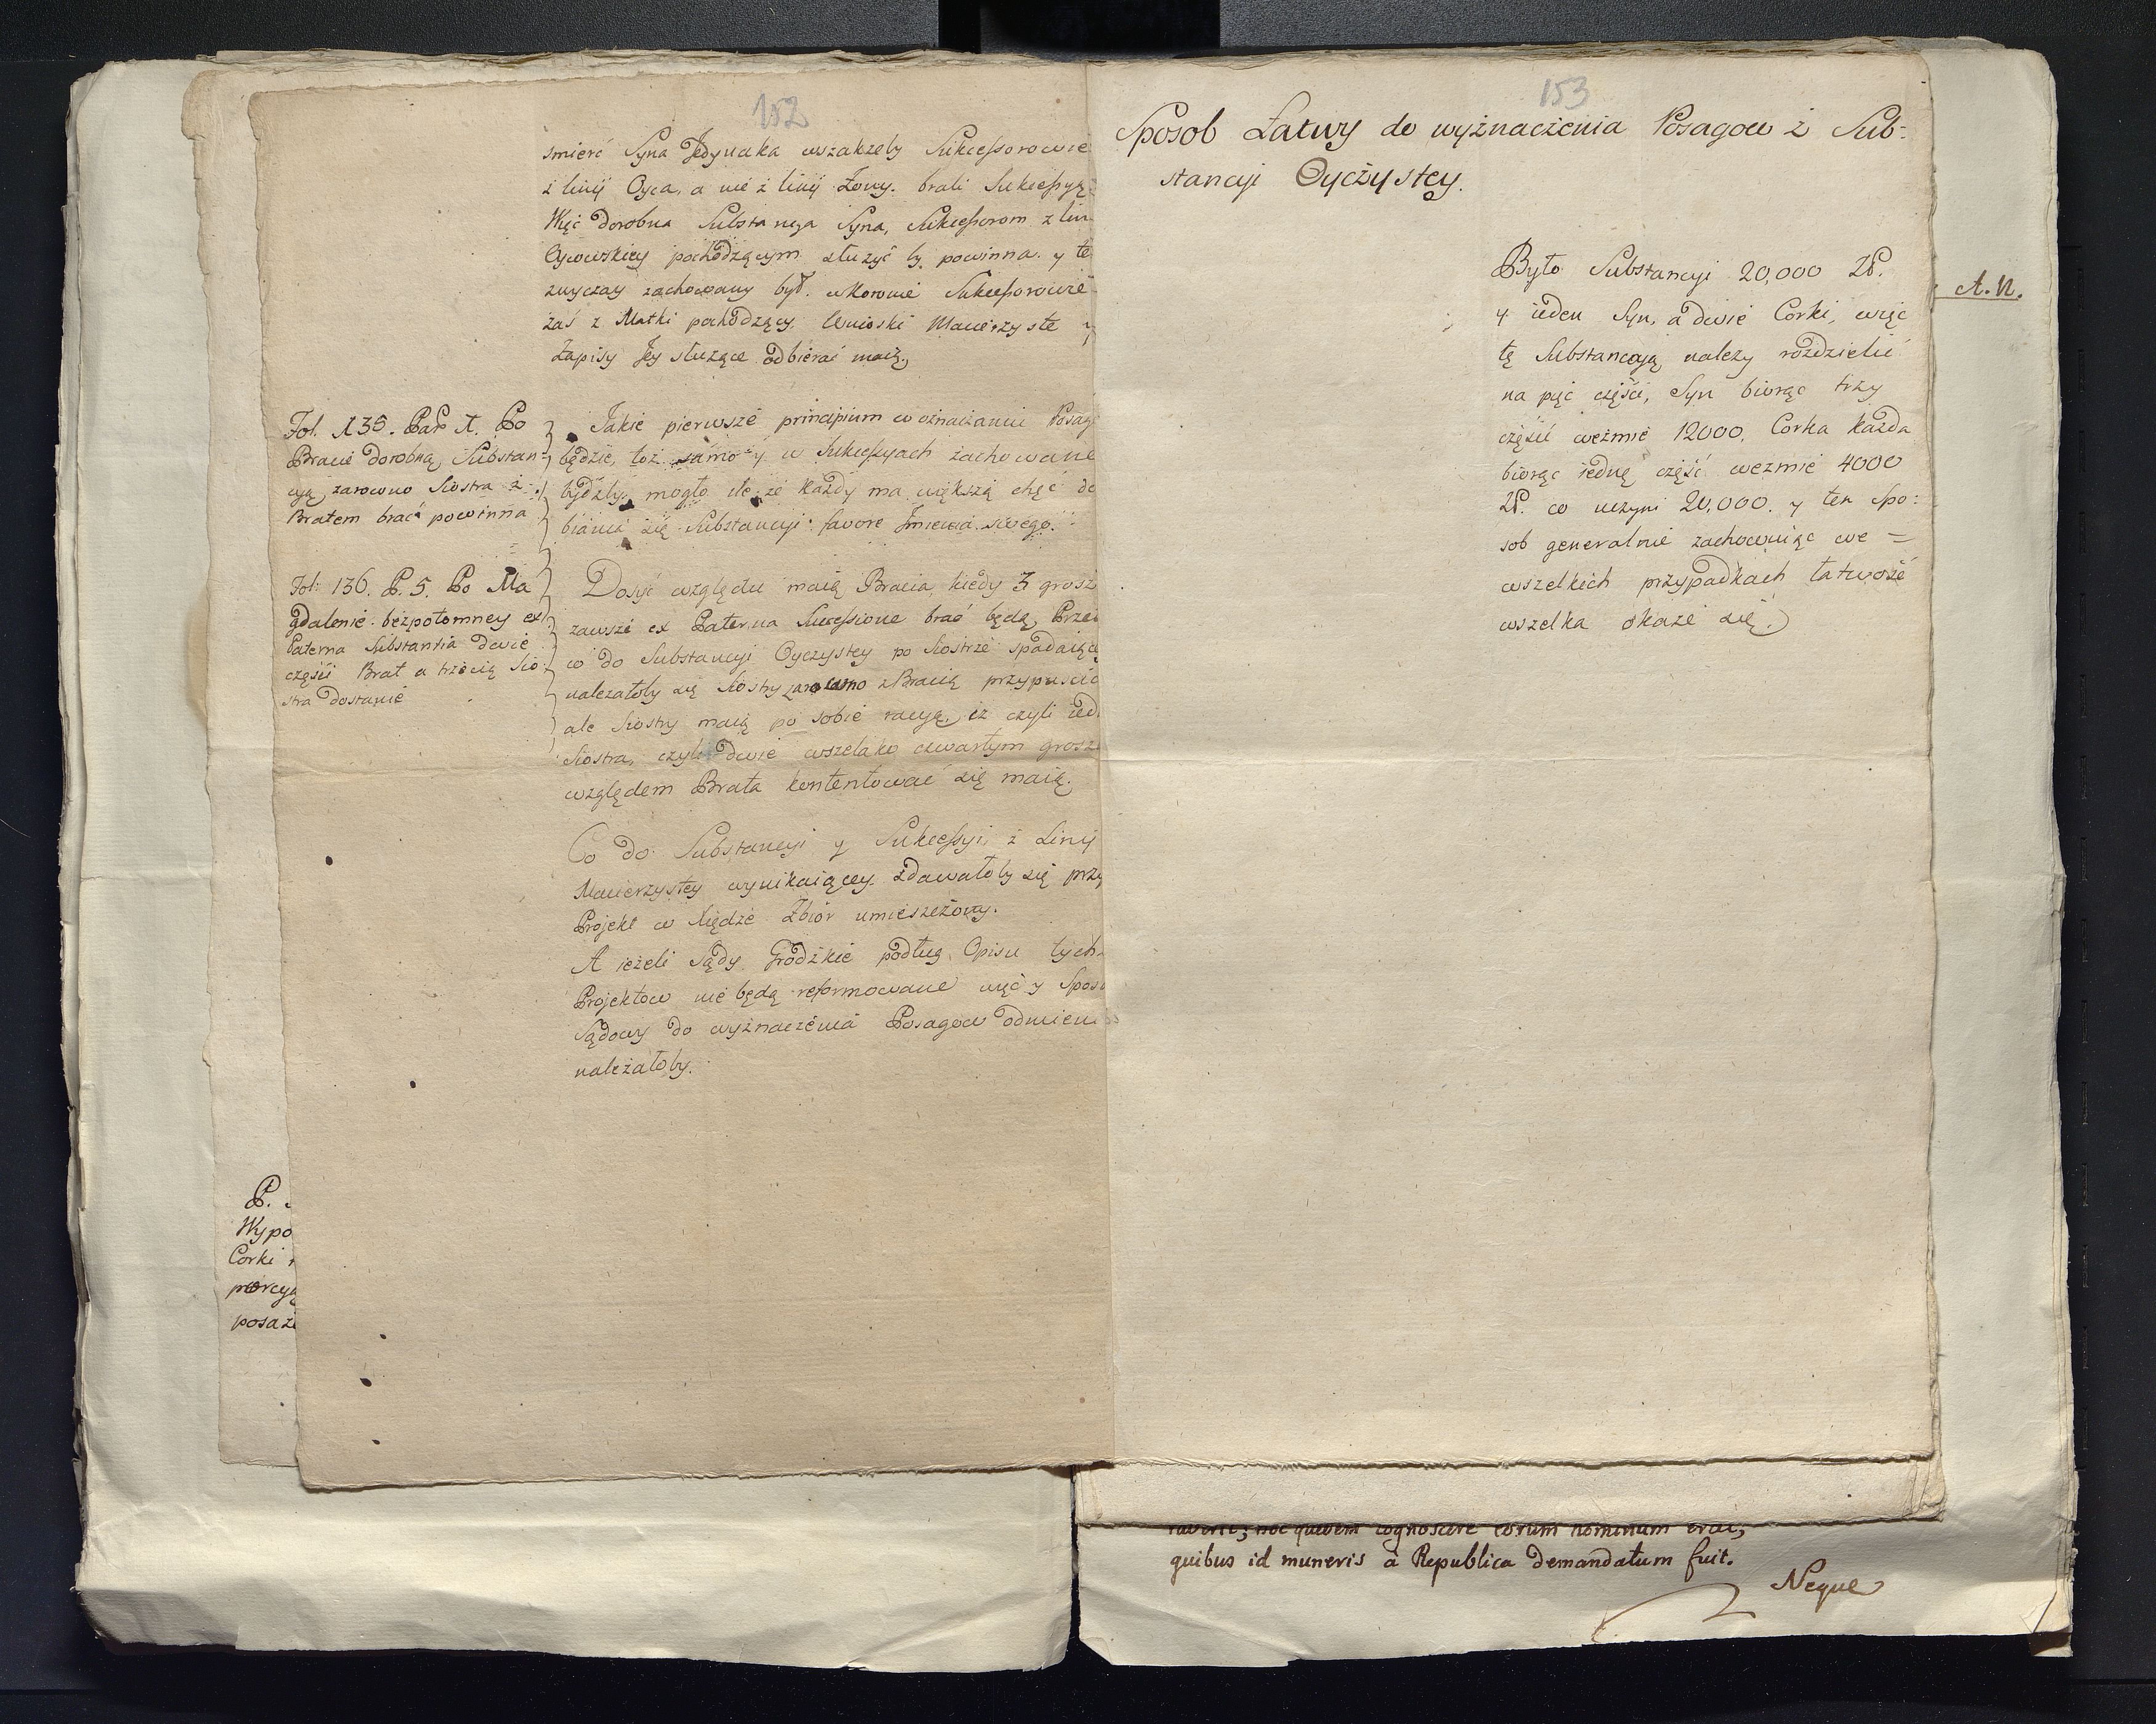 152
smierć Syna Jedynaka wszakzeby Sukcessorowie
z linij Oyca, a nie z linij Zony. brali Sukcessyą
Więc dorobna Substancya Syna, Sukcessorom z lin
Oycowskiey pochodzącym służyć by powinna. y te
zwyczay zachowany był. w Koronie Sukcessorowie
zaś z Matki pochodzący. Wnioski Macierzyste y
Zapisy Jey służące odbierać maią.
Fol. 135. Par 1. Po
Bracie dorobną Substan-
cyą, zarowno Siostra z
Bratem brać powinna
Jakie pierwsze principium w oznaczaniu Posag
będzie, toż samo y w Sukcessyach zachowane
bydźby mogło ile że każdy ma większą chęć do
biania się Substancyi favore Jmienia swego.
Fol: 136. P. 5. Po Ma
gdalenie bezpotomney ex
Paterna Substantia dwie
części Brat a trzecią Sio
stra dostanie
Dosyć względu maią Bracia, kiedy 3 grosz
zawsze ex Paterna Successione brać będą, Prze
co do Substancyi Oyczystey po Siostrze spadaiące
należałoby się Siostry zarowno z Bracią przypuścić
ale Siostry maią po sobie racyą, iż czyli ied
Siostra, czyli dwie wszelako czwartym grosz
względem Brata kontentować się maią.
Co do Substancyi y Sukcessyi z Linij
Macierzystey wynikaiącey. zdawałoby się przy
Projekt w Xiędze Zbiór umieszczony.
A ieżeli Sądy Grodzkie podług Opisu tych
Projektow nie będą reformowane więc y Spos
Sądowy do wyznaczenia Posagow odmieni
należałoby.
P.
Wypo
Corki
porcyą
posaż
153
Sposob Łatwy do wyżnaczenia Posagow z Sub-
stancyi Oyczystey.
Było Substancyi 20,000 Zł.
y ieden Syn, a dwie Corki, więc
tę Substancyą należy rozdzielić
na pięć części, Syn biorąc trzy
części weźmie 12000, Corka każda
biorąc iednę część weźmie 4000
Zł. co uczyni 20,000. y ten Spo:
sob generalnie zachowuiąc we =
wszelkich przypadkach łatwość
wszelka okaże się.
A. N.
quibus id muneris à Republica demandatum fuit.
Neque